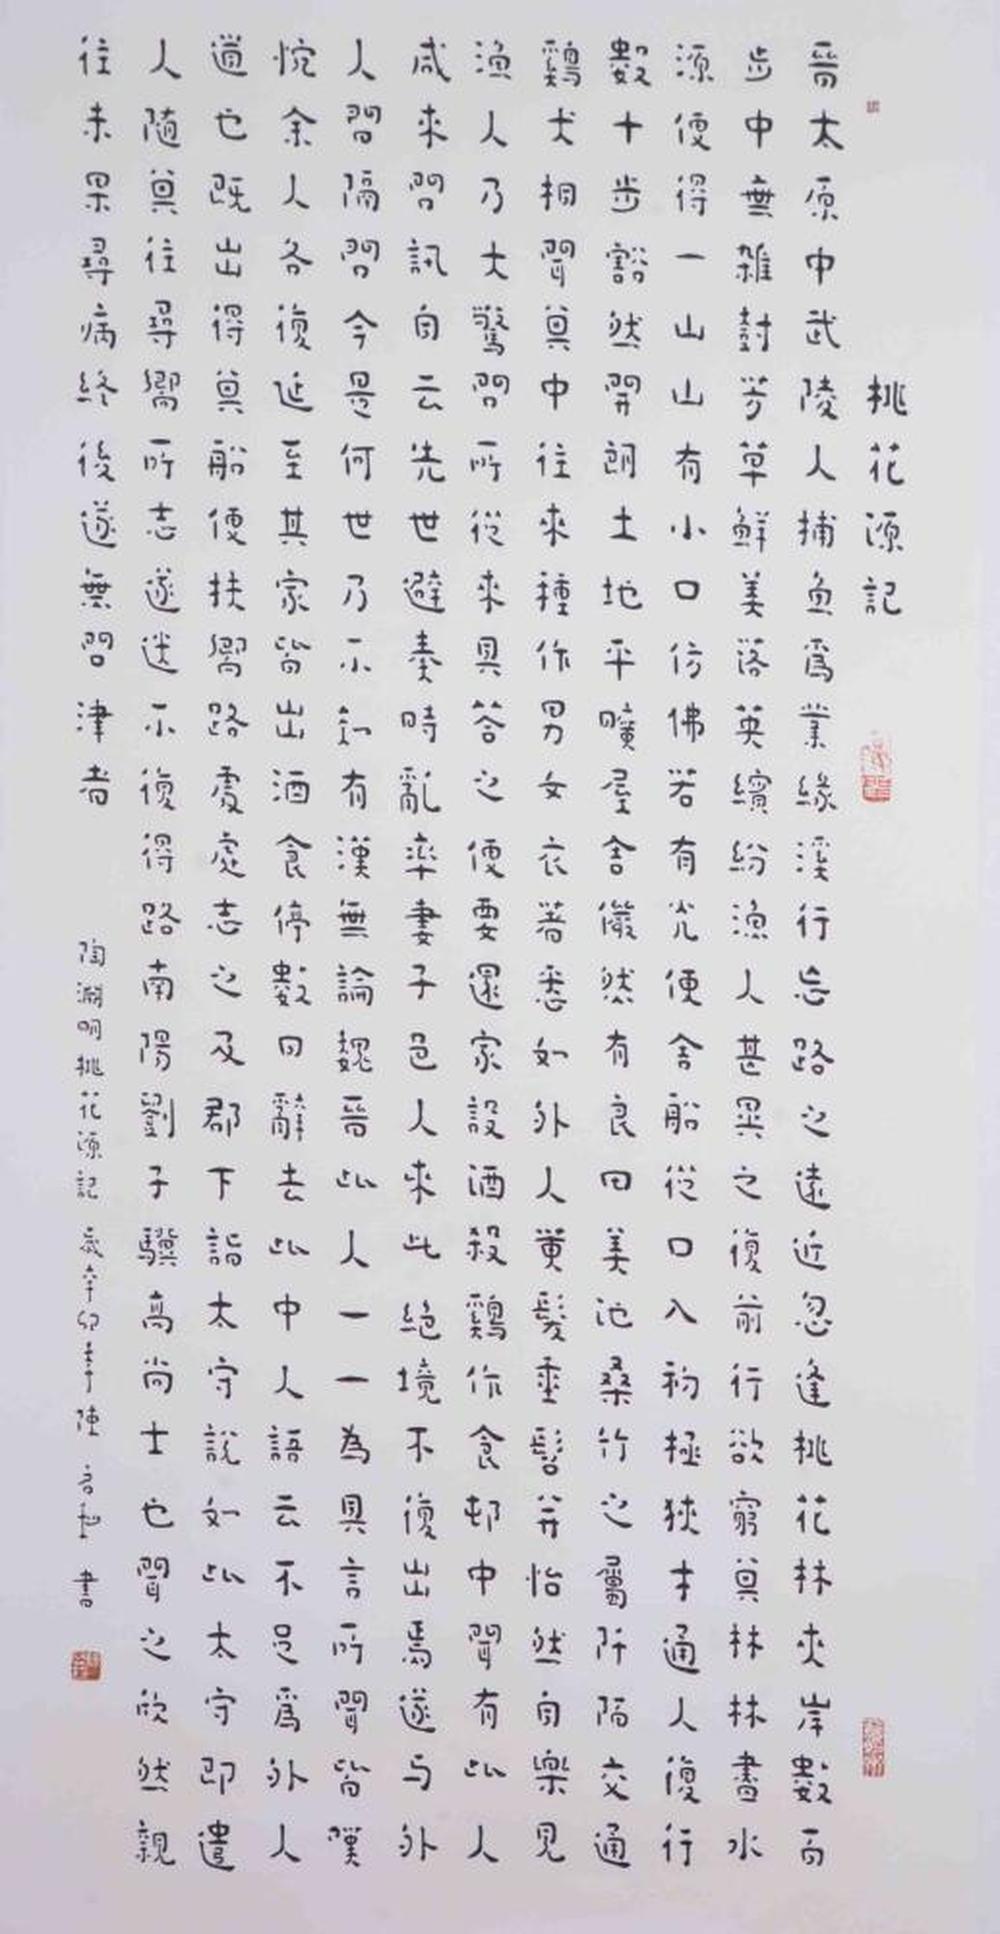 桃花源記
晉太原中武陵人捕魚爲業緣溪行忘路之遠近忽逢桃花林夾岸數百
步中無雜尌芳草鮮美落英繽紛漁人甚異之復前行欲窮其林林盡水
源便得一山山有小口仿佛若有光便舍船從口入初極狹才通人復行
數十步豁然開朗土地平曠屋舍儼然有良田美池桑竹之屬阡陌交通
鷄犬相聞其中往來種作男女衣著悉如外人黄髮垂髫并怡然自樂見
漁人乃大驚問所從來具答之便要還家設酒殺鷄作食邨中聞有此人
咸來問訊自云先世避秦時亂率妻子邑人來此絕境不復出焉遂与外
人間隔問今是何世乃不知有漢無論魏晉此人一一為具言所聞皆嘆
惋余人各復延至其家皆出酒食停數日辭去此中人語云不足爲外人
道也既出得其船便扶嚮路處處志之及郡下詣太守說如此太守即遣
人隨其往尋嚮所志遂迷不復得路南陽劉子驥高尚士也聞之欣然親
往未果尋病終後遂無問津者
陶淵明桃花源記 歲辛卯年陳 書